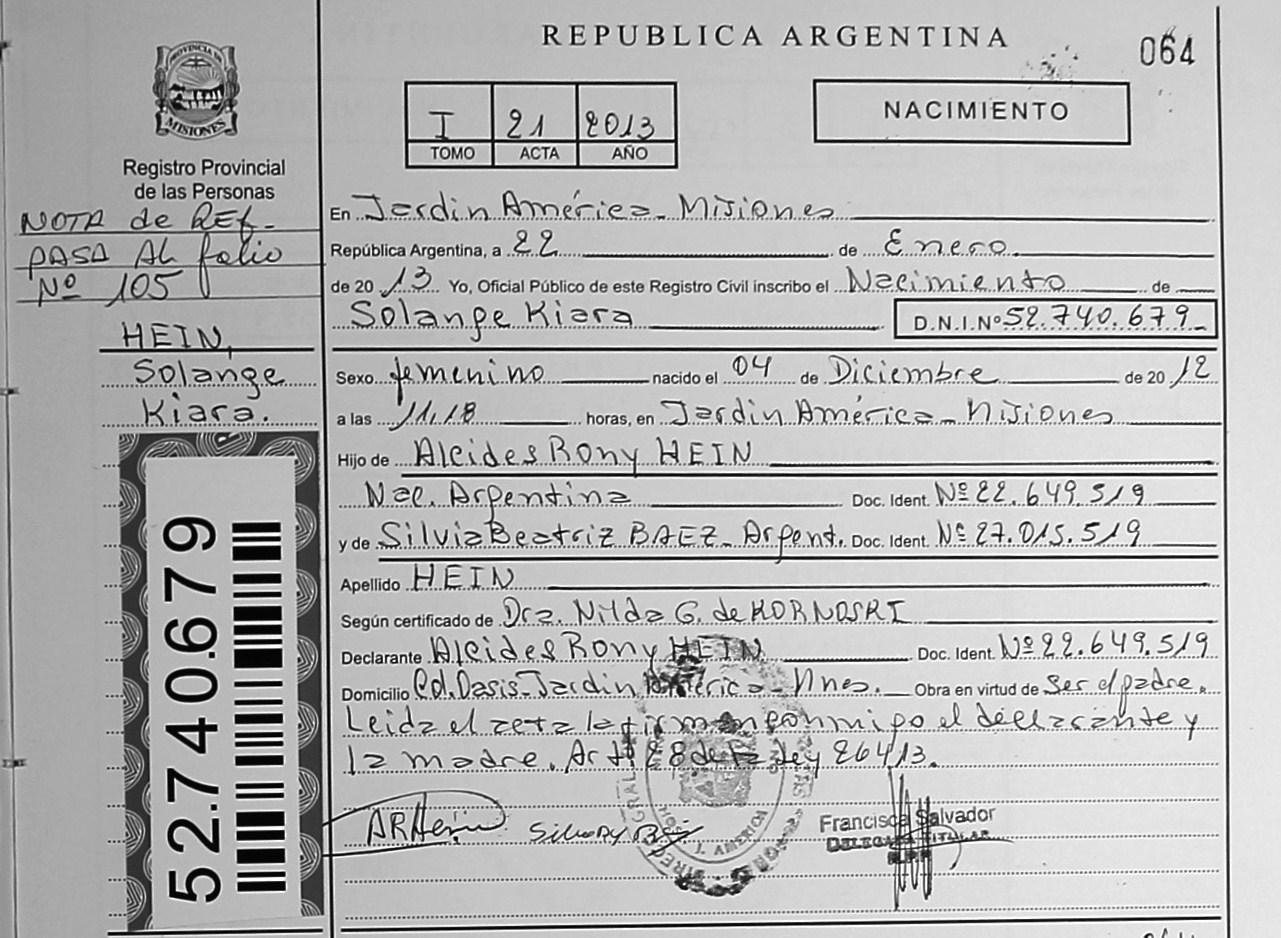 REPUBLICA ARGENTINA
064
PROVINCIA DE
MISIONES
Registro Provincial
de las Personas
NOTA de REF.
PASA AL folio
Nº 105
HEIN,
Solange
Kiara.
52.740.679
I 21 2013
TOMO ACTA AÑO
NACIMIENTO
En Jardin América - Misiones
República Argentina, a 22 de Enero.
de 20 13. Yo, Oficial Público de este Registro Civil inscribo el Nacimiento de
Solange Kiara D.N.I.Nº 52.740.679
Sexo femenino nacido el 04 de Diciembre de 20 12
a las 11.18 horas, en Jardin América - Misiones
Hijo de Alcides Rony HEIN
Nac. Argentina Doc. Ident. Nº 22.649.519
y de Silvia Beatriz BAEZ - Argent. Doc. Ident. Nº 27.015.519
Apellido HEIN
Según certificado de Dra. Nilda G. de KORNOSKI
Declarante Alcides Rony HEIN Doc. Ident. Nº 22.649.519
Domicilio Col. Oasis - Jardin América - Mnes. Obra en virtud de Ser el padre.
Leida el acta la firman conmigo el declarante y
la madre. Art. 28 de la Ley 26413.
ARHein
J. AMERICA
Francisca Salvador
DELEGADA TITULAR